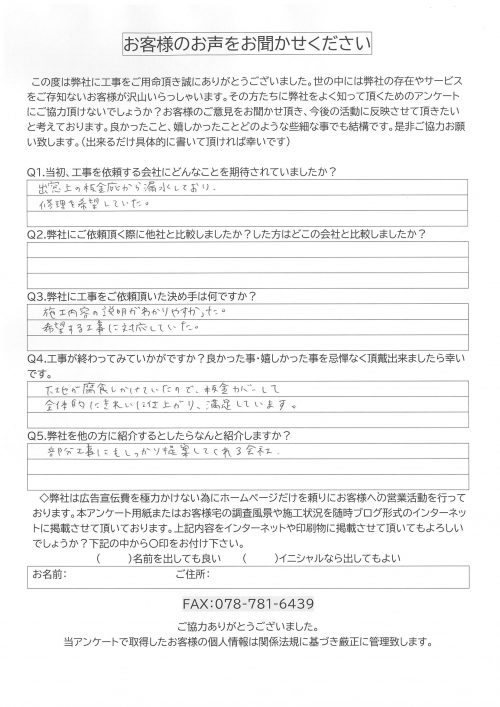 お客様のお声をお聞かせください
この度は弊社に工事をご用命頂き誠にありがとうございました。世の中には弊社の存在やサービス
をご存知ないお客様が沢山いらっしゃいます。その方たちに弊社をよく知って頂くためのアンケート
にご協力頂けないでしょうか?お客様のご意見をお聞かせ頂き、今後の活動に反映させて頂きたい
と考えております。良かったこと、嬉しかったことどのような些細な事でも結構です。是非ご協力お願
い致します。（出来るだけ具体的に書いて頂ければ幸いです）
Q1.当初、工事を依頼する会社にどんなことを期待されていましたか?
出窓上の板金底から漏水しており、
修理を希望していた。
Q2.弊社にご依頼頂く際に他社と比較しましたか?した方はどこの会社と比較しましたか?
Q3.弊社に工事をご依頼頂いた決め手は何ですか?
施工内容の説明がわかりやすかった。
希望する工事に対応していた。
Q4.工事が終わってみていかがですか?良かった事・嬉しかった事を忌憚なく頂戴出来ましたら幸い
です。
下地が腐食しかけていたので、板金カバーして
全体的にきれいに仕上がり、満足しています。
Q5.弊社を他の方に紹介するとしたらなんと紹介しますか?
部分工事にもしっかり提案してくれる会社.
◇弊社は広告宣伝費を極力かけない為にホームページだけを頼りにお客様への営業活動を行って
おります。本アンケート用紙またはお客様宅の調査風景や施工状況を随時ブログ形式のインターネッ
トに掲載させて頂いております。上記内容をインターネットや印刷物に掲載させて頂いてもよろしい
でしょうか?下記の中から〇印をお付け下さい。
（　）名前を出しても良い　（　）イニシャルなら出してもよい
お名前：　ご住所：
FAX：078-781-6439
ご協力ありがとうございました。
当アンケートで取得したお客様の個人情報は関係法規に基づき厳正に管理致します。